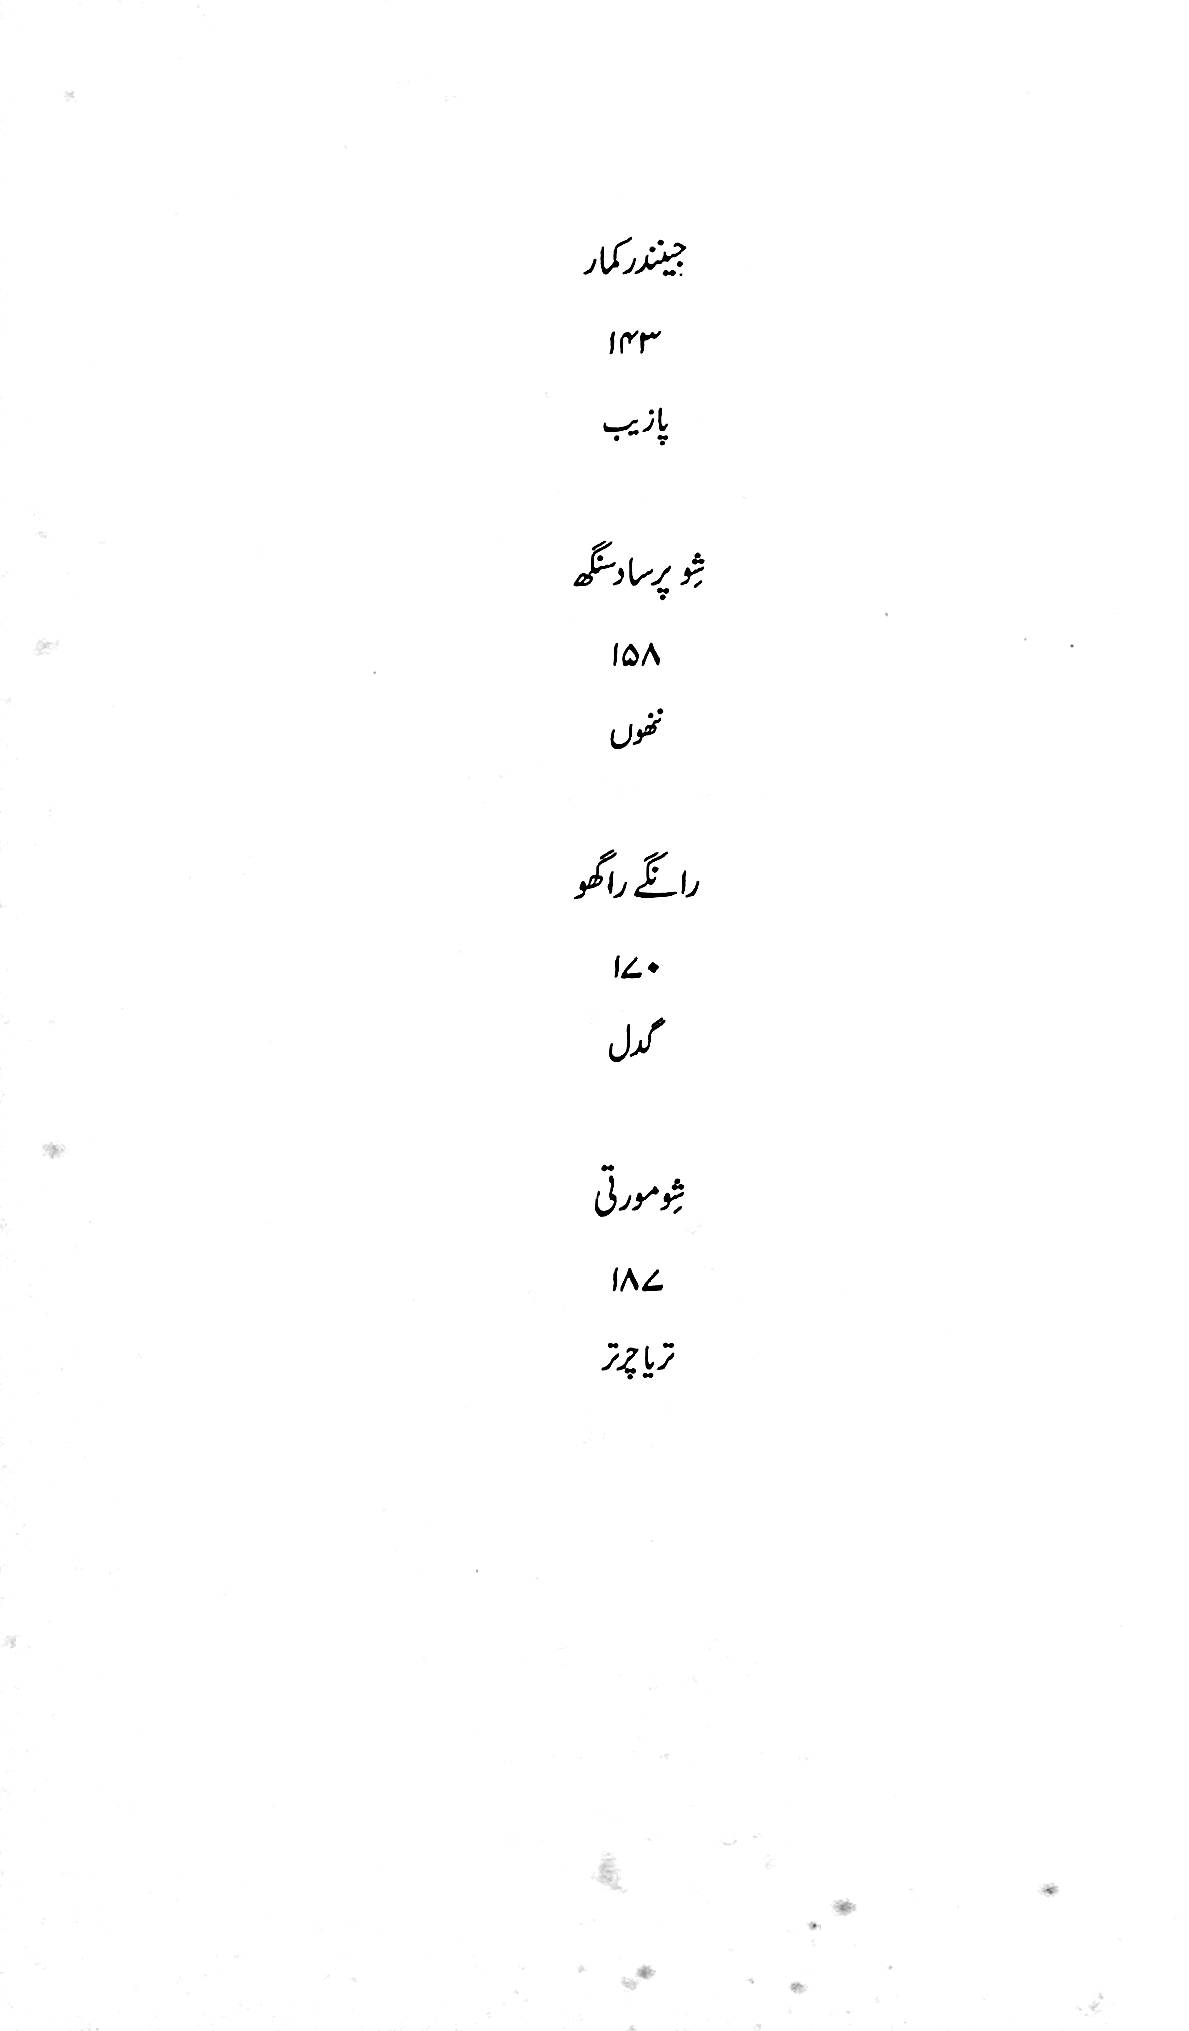 جینندر کمار
۱۴۳
پازیب
شِو پرساد سنگھ
۱۵۸
ننھوں
رانگے راگھو
۱۷۰
گدل
شِو مورتی
۱۸۷
تریا چرتر